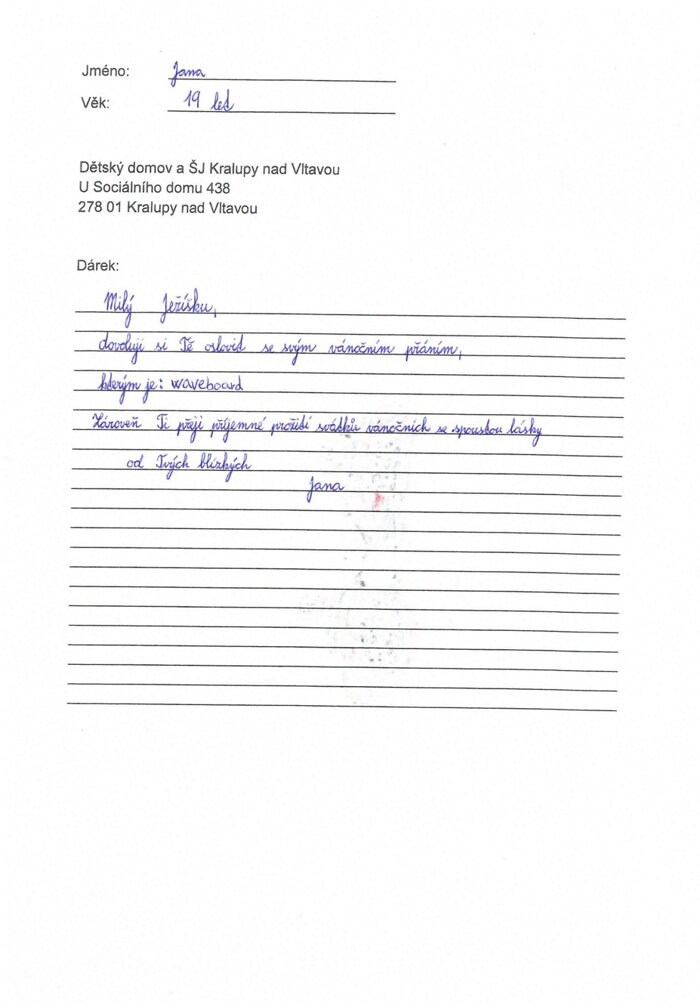 Jméno: Jana
Věk: 19 let
Dětský domov a ŠJ Kralupy nad Vltavou
U Sociálního domu 438
278 01 Kralupy nad Vltavou
Dárek:
Milý Ježíšku,
dovoluji si Tě oslovit se svým vánočním přáním,
kterým je: waveboard
Zároveň Ti přeji příjemné prožití svátků vánočních se spoustou lásky
od Tvých blízkých
Jana